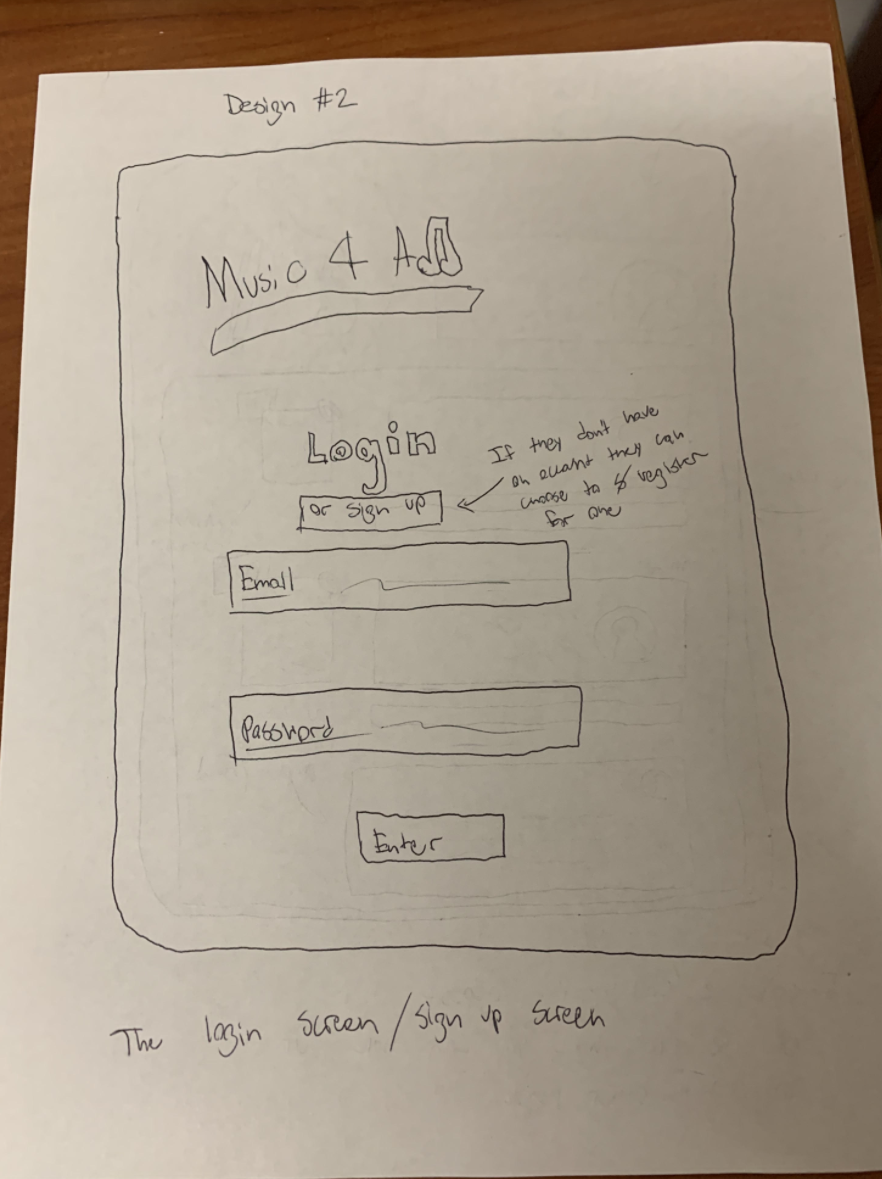 Design #2
Music 4 All
Login
or sign up
If they don't have
an account they can
choose to register
for one
Email
Password
Enter
The login screen / sign up screen